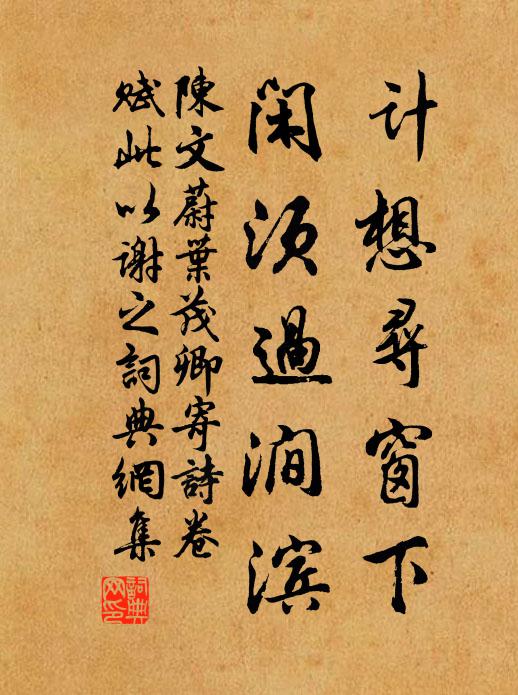 计想寻窗下
闲须过涧滨
陳文蔚葉茂卿寄詩卷
赋此以謝之詞典網集
詞典网印